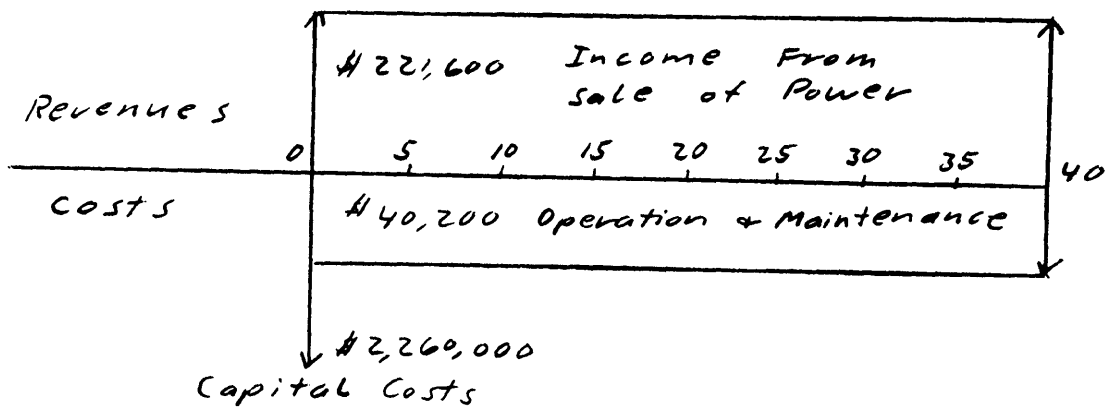 $221,600 Income From
Sale of Power
Revenues
0 5 10 15 20 25 30 35 40
Costs
$40,200 Operation & Maintenance
$2,260,000
Capital Costs